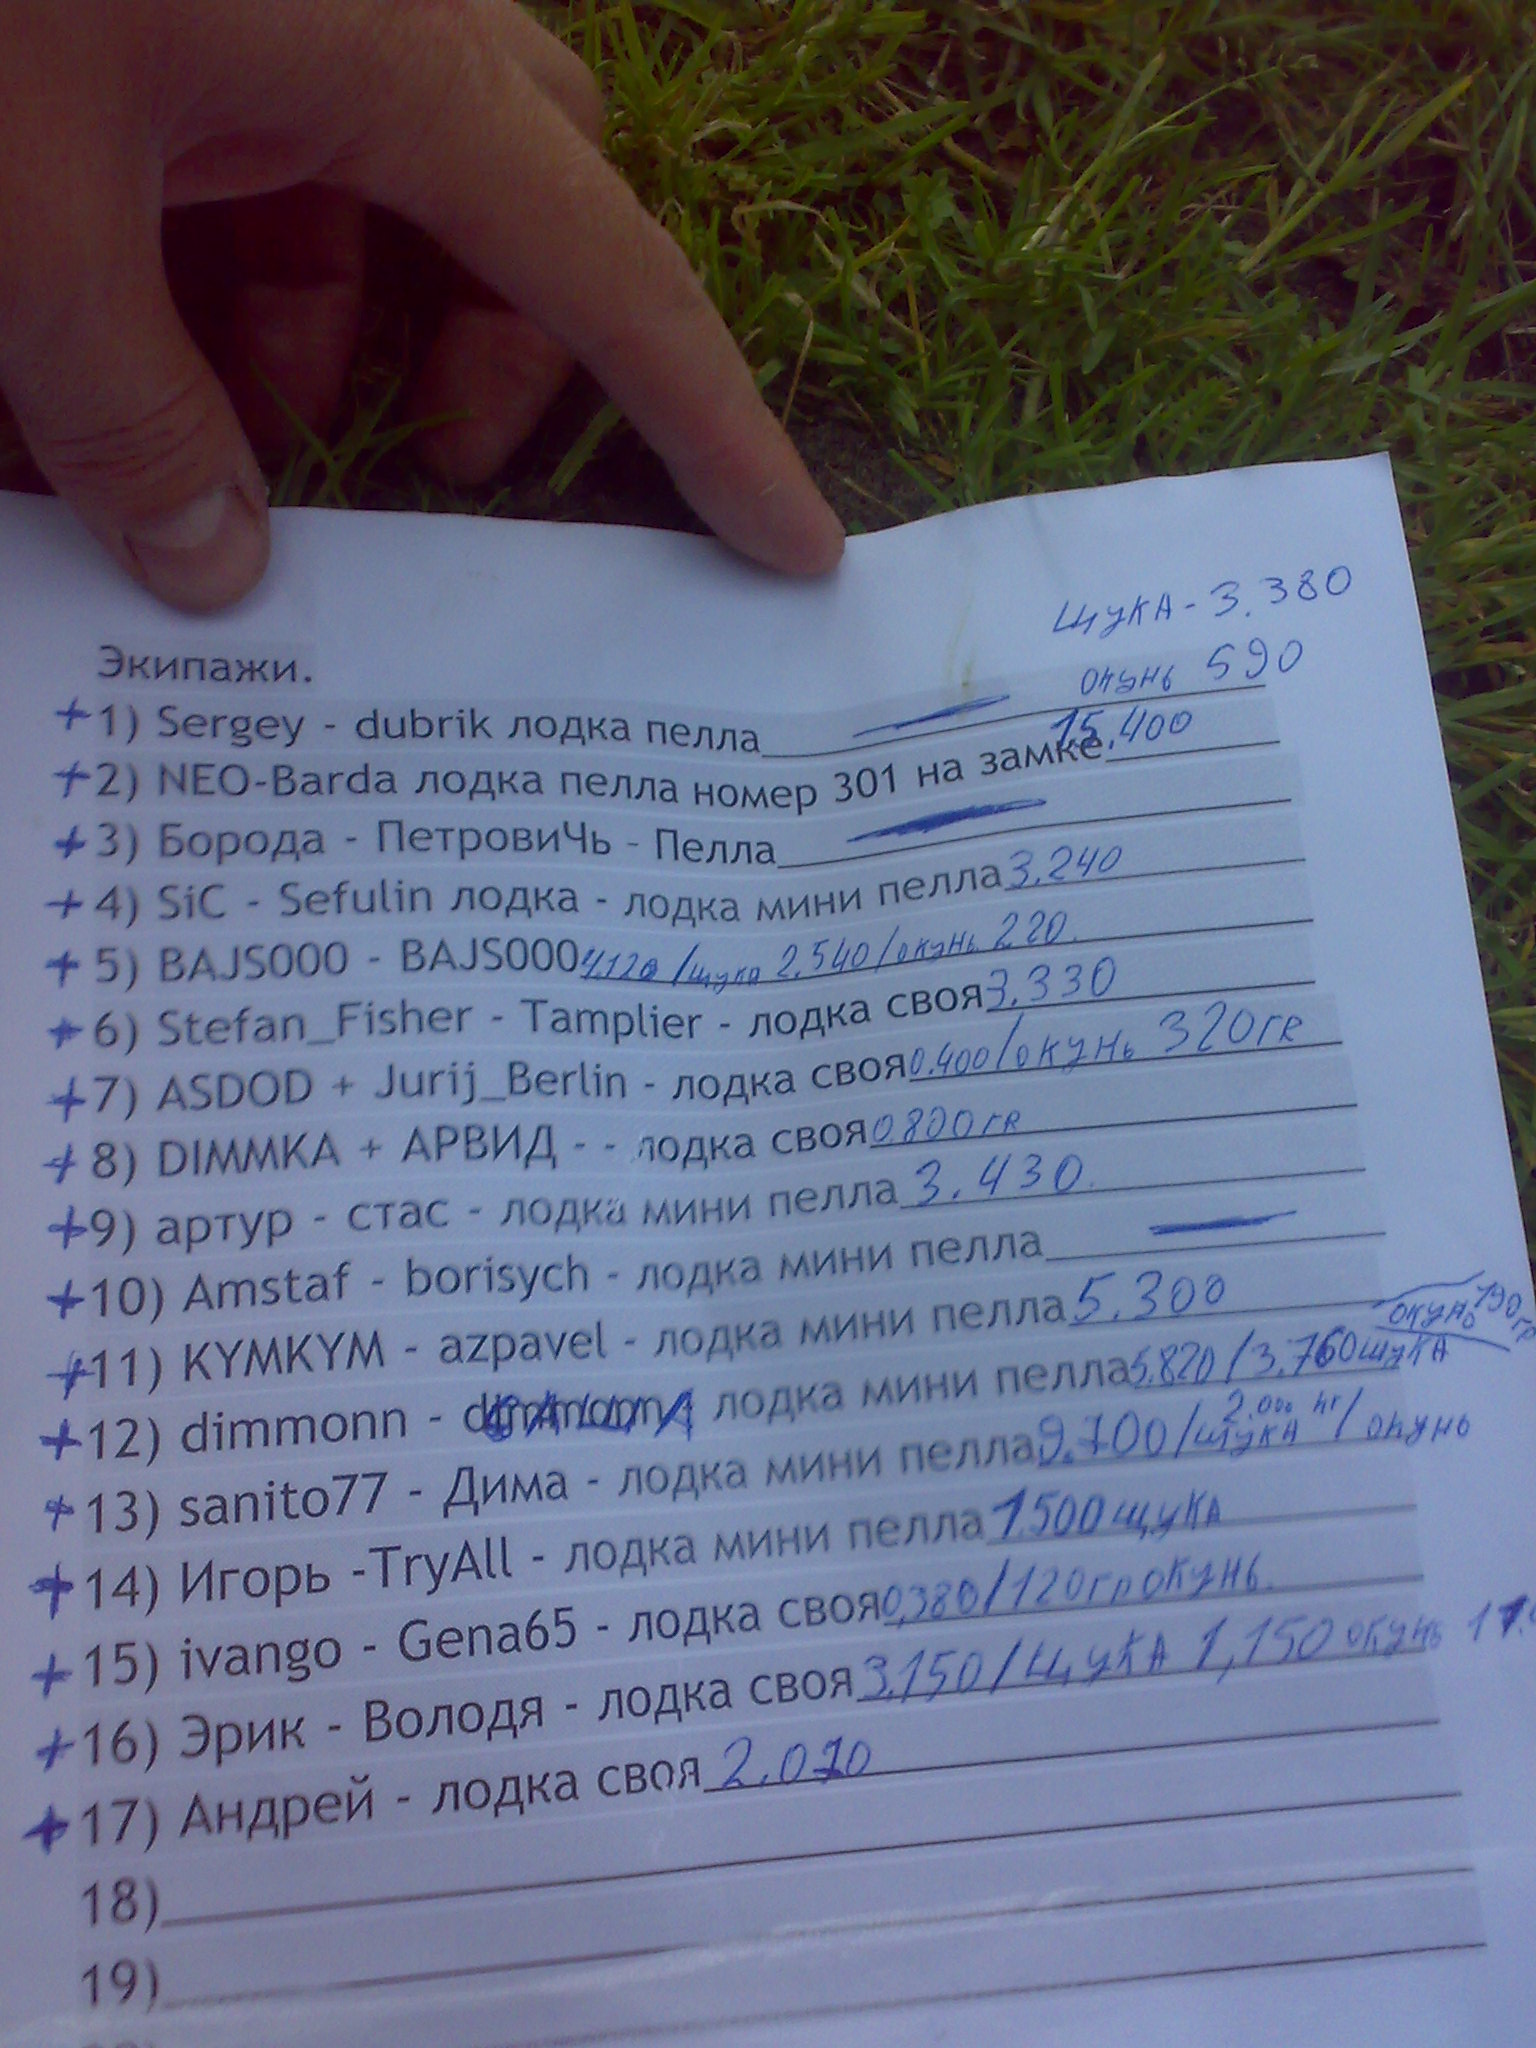 ЩУКА - 3.380
Экипажи.
окунь 590
+ 1) Sergey - dubrik лодка пелла
15.400
+ 2) NEO-Barda лодка пелла номер 301 на замке
+ 3) Борода - ПетровиЧь - Пелла
+ 4) SiC - Sefulin лодка - лодка мини пелла 3.240
+ 5) BAJS000 - BAJS000 4.120 / щука 2.540 / окунь 220.
+ 6) Stefan_Fisher - Tamplier - лодка своя 3.330
+ 7) ASDOD + Jurij_Berlin - лодка своя 0.400 / окунь 320гр
+ 8) DIMMKA + АРВИД - - лодка своя 0800гр
+ 9) артур - стас - лодка мини пелла 3.430.
+ 10) Amstaf - borisych - лодка мини пелла
+ 11) KYMKYM - azpavel - лодка мини пелла 5.300
окунь 190гр
+ 12) dimmonn - САША лодка мини пелла 5.820 / 3.760 щука
2.000
+ 13) sanito77 - Дима - лодка мини пелла 9.700 / щука / окунь
+ 14) Игорь -TryAll - лодка мини пелла 1500 щука
+ 15) ivango - Gena65 - лодка своя 0,380 / 120гр окунь.
+ 16) Эрик - Володя - лодка своя 3.150 / щука 1,150 окунь
+ 17) Андрей - лодка своя 2.010
18)
19)